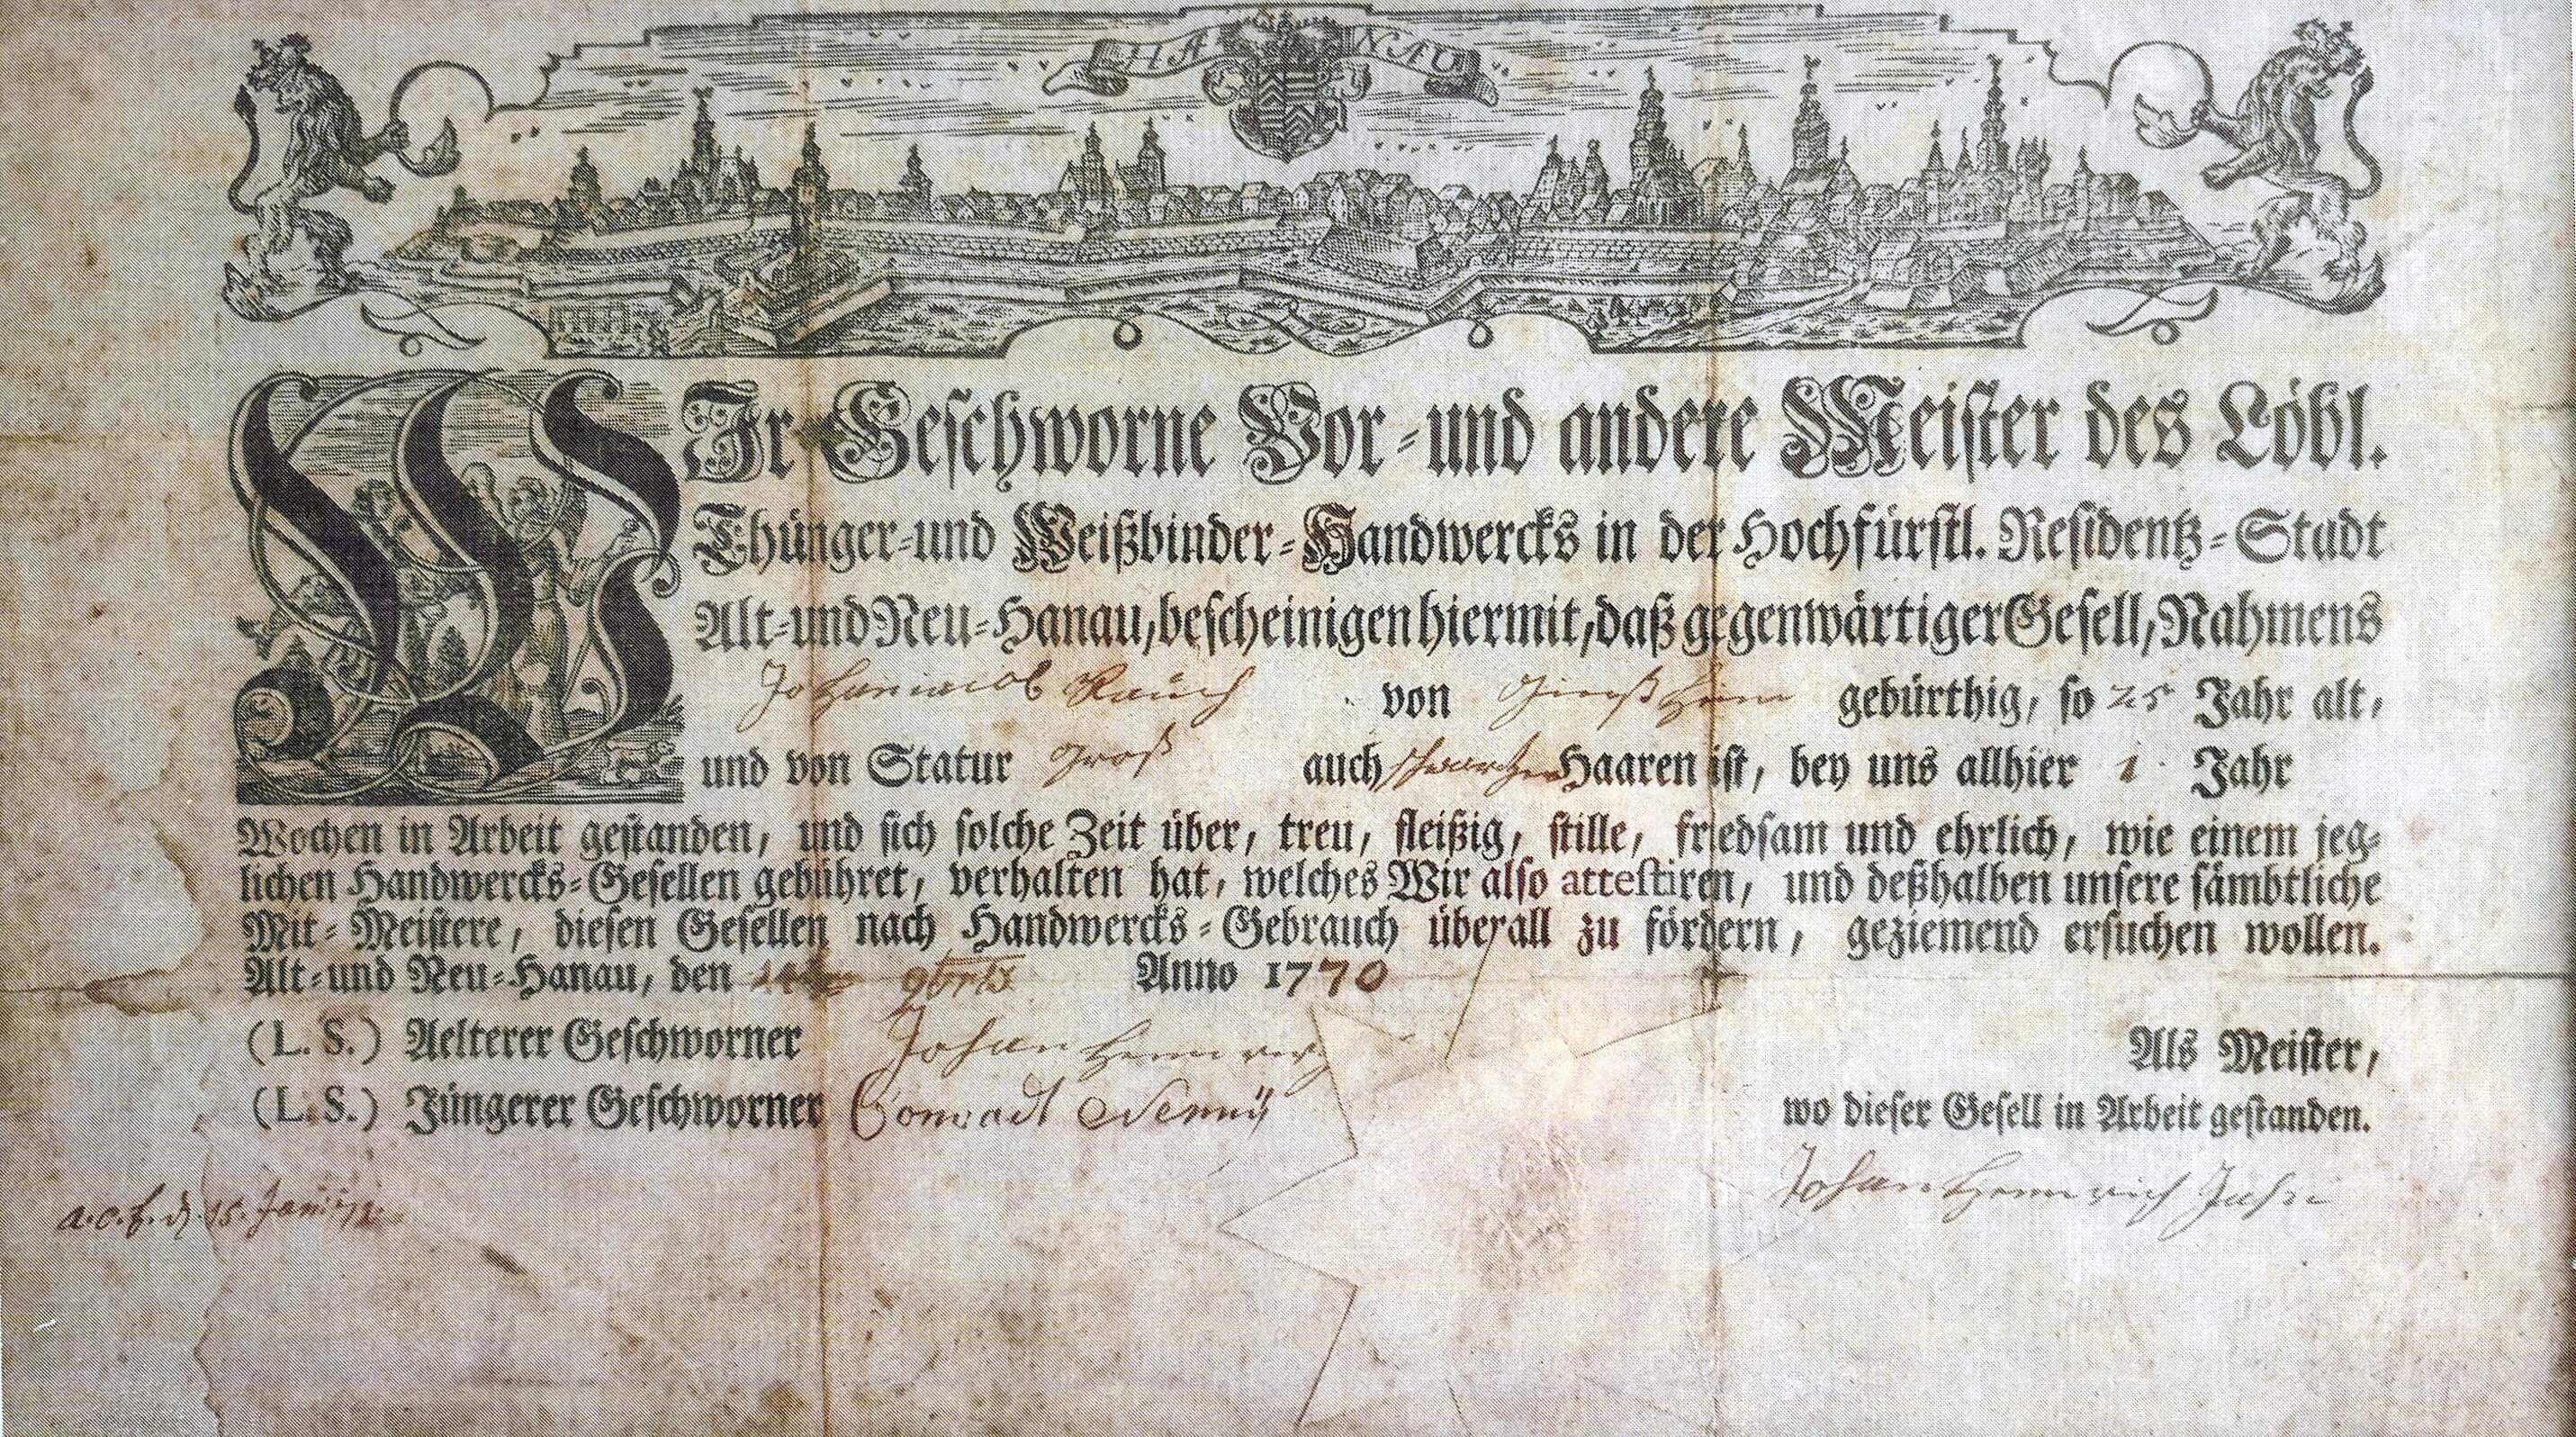 HANAU
WIr Geschworne Vor- und andere Meister des Löbl.
Thünger- und Weißbinder-Handwercks in der Hochfürstl. Residentz-Stadt
Alt- und Neu-Hanau, bescheinigen hiermit, daß gegenwärtiger Gesell, Nahmens
Johaniacob Rauch von gebürthig, so 25 Jahr alt,
und von Statur groß auch schwartzen Haaren ist, bey uns allhier 1. Jahr
Wochen in Arbeit gestanden, und sich solche Zeit über, treu, fleißig, stille, friedsam und ehrlich, wie einem jeg-
lichen Handwercks-Gesellen gebühret, verhalten hat, welches Wir also attestiren, und deßhalben unsere sämbtliche
Mit-Meistere, diesen Gesellen nach Handwercks-Gebrauch überall zu fördern, geziemend ersuchen wollen.
Alt- und Neu-Hanau, den 9bris Anno 1770
(L. S.) Aelterer Geschworner Johan Henrich
(L. S.) Jüngerer Geschworner Conradt
Als Meister,
wo dieser Gesell in Arbeit gestanden.
Johan Henrich Jahn
15. Jan: